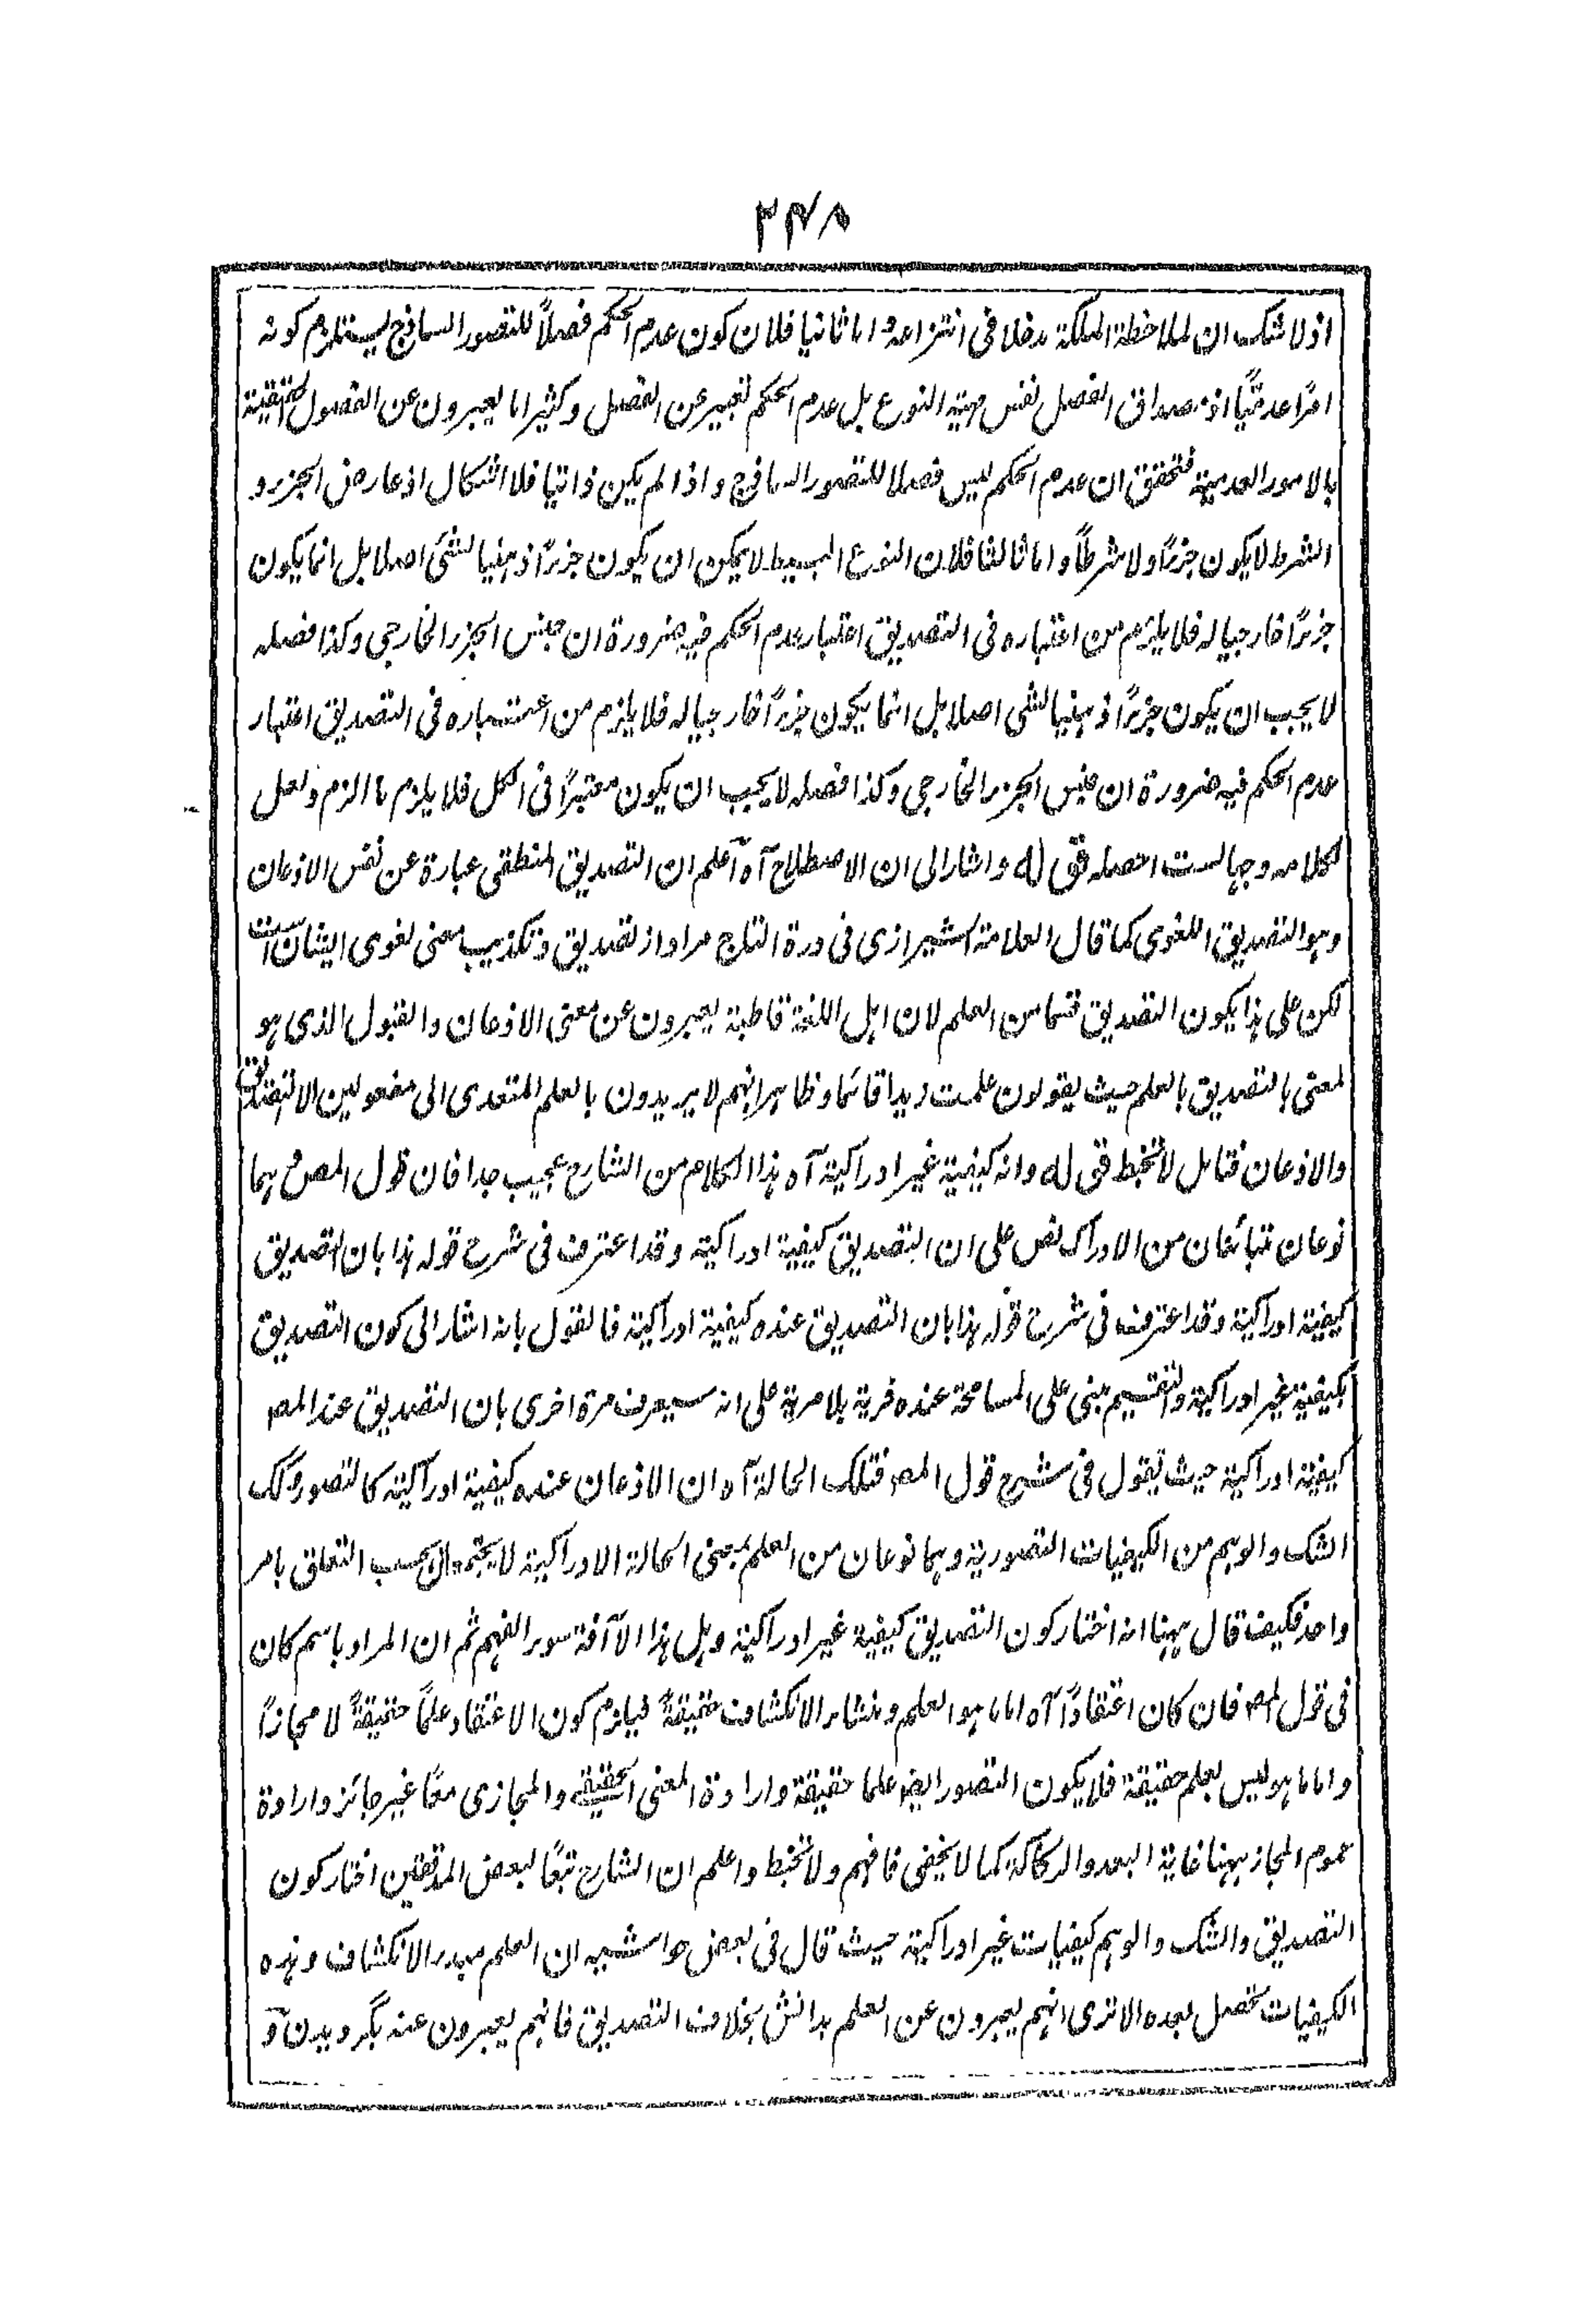 ٢٣٨
اذ لا شك ان لملاحظة الملكة مدخلا فى انتزاعه واما ثانيا فلان كون عدم الحكم فصلاً للتصور الساذج يستلزم كونه
امرًا عدميًّا اذ مصداق الفصل نفس مهية النوع بل عدم الحكم تعبير عن الفصل وكثيرا ما يعبرون عن الفصول الحقيقية
بالامور العدمية فتحقق ان عدم الحكم ليس فصلا للتصور الساذج واذا لم يكن ذاتيا فلا اشكال اذ عارض الجزء و
الشرط لا يكون جزءًا ولا شرطاً واما ثالثا فلان النوع البسيط لا يمكن ان يكون جزءًا ذهنيا لشئ اصلا بل انما يكون
جزءًا خارجيا له فلا يلزم من اعتباره فى التصديق اعتبار عدم الحكم فيه ضرورة ان جنس الجزء الخارجى وكذا فصله
لا يجب ان يكون جزءًا ذهنيا لشى اصلا بل انما يكون جزءًا خارجيا له فلا يلزم من اعتباره فى التصديق اعتبار
عدم الحكم فيه ضرورة ان جنس الجزء الخارجى وكذا فصله لا يجب ان يكون معتبرًا فى الكل فلا يلزم ما الزم ولعل
لكلامه وجها لست احصله قوله واشار الى ان الاصطلاح آه اعلم ان التصديق المنطقى عبارة عن نفس الاذعان
وهو التصديق اللغوى كما قال العلامة الشيرازى فى درة التاج مراد از تصديق وتكذيب معنى لغوى ايشان است
لكن على هذا يكون التصديق قسما من العلم لان اهل اللغة قاطبة يعبرون عن معنى الاذعان والقبول الذى هو
لمعنى بالتصديق بالعلم حيث يقولون علمت زيدا قائما وظاهر انهم لا يريدون بالعلم المتعدى الى مفعولين الا التصديق
والاذعان فتامل لا تخبط قوله وانه كيفية غير ادراكية آه هذا الكلام من الشارح عجيب جدا فان قول المص هما
نوعان متبائنان من الادراك نص على ان التصديق كيفية ادراكية وقد اعترف فى شرح قوله هذا بان التصديق
كيفية ادراكية وقد اعترف فى شرح قوله هذا بان التصديق عنده كيفية ادراكية فالقول بانه اشار الى كون التصديق
كيفية غير ادراكية والتقسيم مبنى على المسامحة عنده فرية بلا مرية على انه سيعرف مرة اخرى بان التصديق عند المص
كيفية ادراكية حيث يقول فى شرح قول المص فتلك الحالة آه ان الاذعان عنده كيفية ادراكية كالتصور وكك
الشك والوهم من الكيفيات التصورية وهما نوعان من العلم بمعنى الحالة الادراكية لا يجتمعان بحسب التعلق بامر
واحد فكيف قال ههنا انه اختار كون التصديق كيفية غير ادراكية وهل هذا الا آفة سوء الفهم ثم ان المراد باسم كان
فى قول المص فان كان اعتقادًا آه اما ما هو العلم ومنشاء الانكشاف حقيقةً فيلزم كون الاعتقاد علمًا حقيقةً لا مجازًا
واما ما هو ليس بعلم حقيقة فلا يكون التصور ايضا علما حقيقة وارادة المعنى الحقيقى والمجازى معًا غير جائز وارادة
عموم المجاز ههنا غاية البعد والركاكة كما لا يخفى فافهم ولا تخبط واعلم ان الشارح تبعًا لبعض المدققين اختار كون
التصديق والشك والوهم كيفيات غير ادراكية حيث قال فى بعض حواشيه ان العلم مبدء الانكشاف وهذه
الكيفيات تحصل بعده الا ترى انهم يعبرون عن العلم بدانش بخلاف التصديق فانهم يعبرون عنه بگرويدن و